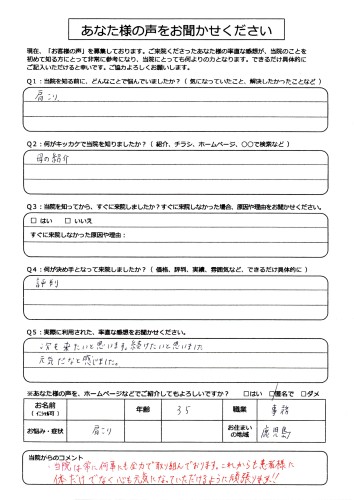 あなた様の声をお聞かせください
現在、「お客様の声」を募集しております。ご来院くださったあなた様の率直な感想が、当院のことを
初めて知る方にとって非常に参考になり、当院にとっても何よりの力となります。できるだけ具体的に
ご記入いただけると幸いです。ご協力よろしくお願いします。
Q1：当院を知る前に、どんなことで悩んでいましたか？（ 気になっていたこと、解決したかったことなど ）
肩こり
Q2：何がキッカケで当院を知りましたか？（ 紹介、チラシ、ホームページ、〇〇で検索など ）
母の紹介
Q3：当院を知ってから、すぐに来院しましたか？すぐに来院しなかった場合、原因や理由をお聞かせください。
□ はい □ いいえ
すぐに来院しなかった原因や理由：
Q4：何が決め手となって来院しましたか？（ 価格、評判、実績、雰囲気など、できるだけ具体的に ）
評判
Q5：実際に利用された、率直な感想をお聞かせください。
次も来たいと思います。続けたいと思いました
元気だなと感じました。
※あなた様の声を、ホームページなどでご紹介してもよろしいですか？ □はい □匿名で □ダメ
お名前 年齢 35 職業 事務
（ｲﾆｼｬﾙ可）
お悩み・症状 肩こり お住まいの地域 鹿児島
当院からのコメント
当院は常に何事にも全力で取り組んでおります。これからも患者様に
体だけでなく心も元気になっていただけるように頑張ります！